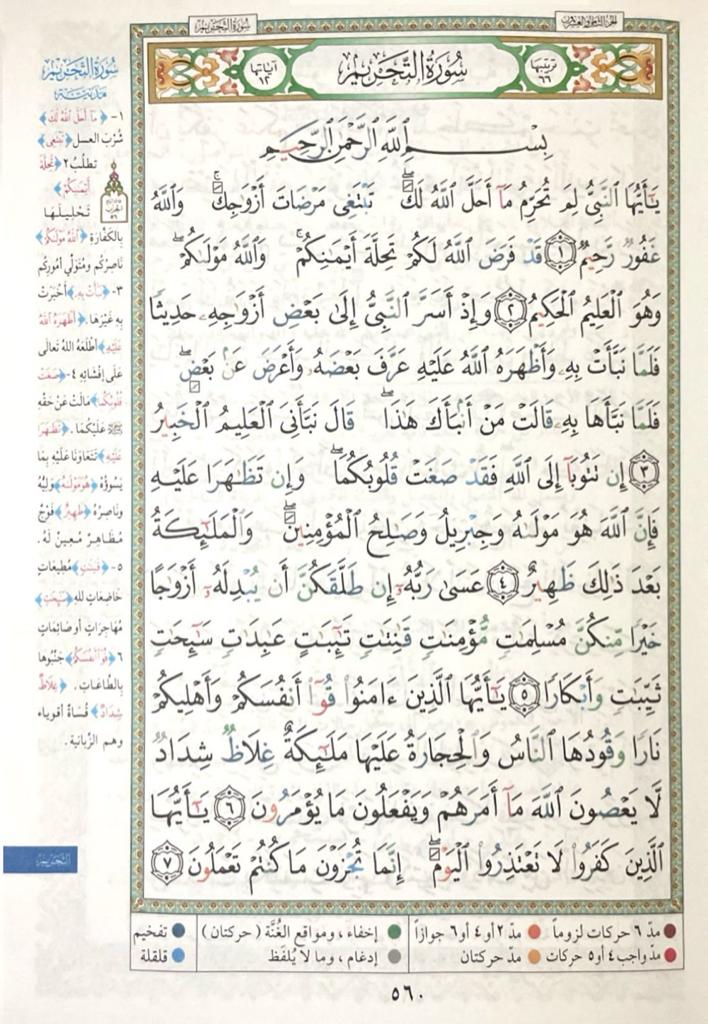 سُورَةُ التَّحْرِيمِ
الجزء الثامن والعشرون
ترتيبها ٦٦
سُورَةُ التَّحْرِيمِ
آياتها ١٢
بِسْمِ اللَّهِ الرَّحْمَٰنِ الرَّحِيمِ
يَٰٓأَيُّهَا النَّبِيُّ لِمَ تُحَرِّمُ مَآ أَحَلَّ اللَّهُ لَكَ ۖ تَبْتَغِى مَرْضَاتَ أَزْوَٰجِكَ ۚ وَاللَّهُ
غَفُورٌ رَّحِيمٌ ١ قَدْ فَرَضَ اللَّهُ لَكُمْ تَحِلَّةَ أَيْمَٰنِكُمْ ۚ وَاللَّهُ مَوْلَىٰكُمْ ۖ
وَهُوَ الْعَلِيمُ الْحَكِيمُ ٢ وَإِذْ أَسَرَّ النَّبِيُّ إِلَىٰ بَعْضِ أَزْوَٰجِهِ حَدِيثًا
فَلَمَّا نَبَّأَتْ بِهِ وَأَظْهَرَهُ اللَّهُ عَلَيْهِ عَرَّفَ بَعْضَهُ وَأَعْرَضَ عَنۢ بَعْضٍ ۖ
فَلَمَّا نَبَّأَهَا بِهِ قَالَتْ مَنْ أَنۢبَأَكَ هَٰذَا ۖ قَالَ نَبَّأَنِىَ الْعَلِيمُ الْخَبِيرُ
٣ إِن تَتُوبَآ إِلَى اللَّهِ فَقَدْ صَغَتْ قُلُوبُكُمَا ۖ وَإِن تَظَٰهَرَا عَلَيْهِ
فَإِنَّ اللَّهَ هُوَ مَوْلَىٰهُ وَجِبْرِيلُ وَصَٰلِحُ الْمُؤْمِنِينَ ۖ وَالْمَلَٰٓئِكَةُ
بَعْدَ ذَٰلِكَ ظَهِيرٌ ٤ عَسَىٰ رَبُّهُۥٓ إِن طَلَّقَكُنَّ أَن يُبْدِلَهُۥٓ أَزْوَٰجًا
خَيْرًا مِّنكُنَّ مُسْلِمَٰتٍ مُّؤْمِنَٰتٍ قَٰنِتَٰتٍ تَٰٓئِبَٰتٍ عَٰبِدَٰتٍ سَٰٓئِحَٰتٍ
ثَيِّبَٰتٍ وَأَبْكَارًا ٥ يَٰٓأَيُّهَا الَّذِينَ ءَامَنُوا قُوٓا أَنفُسَكُمْ وَأَهْلِيكُمْ
نَارًا وَقُودُهَا النَّاسُ وَالْحِجَارَةُ عَلَيْهَا مَلَٰٓئِكَةٌ غِلَاظٌ شِدَادٌ
لَّا يَعْصُونَ اللَّهَ مَآ أَمَرَهُمْ وَيَفْعَلُونَ مَا يُؤْمَرُونَ ٦ يَٰٓأَيُّهَا
الَّذِينَ كَفَرُوا لَا تَعْتَذِرُوا الْيَوْمَ ۖ إِنَّمَا تُجْزَوْنَ مَا كُنتُمْ تَعْمَلُونَ ٧
سُورَةُ التَّحْرِيمِ
مَدَنِيَّة
١- ﴿مَآ أَحَلَّ اللَّهُ لَكَ﴾
شُرْبَ العسل ﴿تَبْتَغِى﴾
تطلُبُ ٢ ﴿تَحِلَّةَ
أَيْمَٰنِكُمْ﴾
تَحْلِيلَهَا
بِالكَفَّارَةِ ﴿اللَّهُ مَوْلَىٰكُمْ﴾
نَاصِرُكم ومُتَوَلِّي أمُورِكم
٣- ﴿نَبَّأَتْ بِهِ﴾ أَخْبَرَتْ
بِهِ غَيْرَهَا. ﴿أَظْهَرَهُ اللَّهُ
عَلَيْهِ﴾ أَطْلَعَهُ اللهُ تَعالَى
عَلَى إفْشَائِهِ ٤- ﴿صَغَتْ
قُلُوبُكُمَا﴾ مَالَتْ عَنْ حَقِّهِ
ﷺ عَلَيْكُمَا. ﴿تَظَٰهَرَا
عَلَيْهِ﴾ تَتَعَاوَنَا عَلَيْهِ بِمَا
يَسُوؤُهُ ﴿هُوَ مَوْلَىٰهُ﴾ وَلِيُّهُ
وناصِرُهُ ﴿ظَهِيرٌ﴾ فَوْجٌ
مُظَاهِرٌ مُعِينٌ لَهُ.
٥- ﴿قَٰنِتَٰتٍ﴾ مُطِيعَاتٍ
خَاضِعَاتٍ للهِ ﴿سَٰٓئِحَٰتٍ﴾
مُهَاجِرَاتٍ أو صَائِمَاتٍ
٦ ﴿قُوٓا أَنفُسَكُمْ﴾ جَنِّبُوها
بِالطَّاعَاتِ. ﴿غِلَاظٌ
شِدَادٌ﴾ قُسَاةٌ أقوياء
وهم الزَّبانية.
التَّحْرِيمِ
مدّ ٦ حركات لزوماً مدّ ٢ أو ٤ أو ٦ جوازاً إخفاء، ومواقع الغُنَّة (حركتان) تفخيم
مدّ واجب ٤ أو ٥ حركات مدّ حركتان إدغام، وما لا يُلفَظ قلقلة
٥٦٠